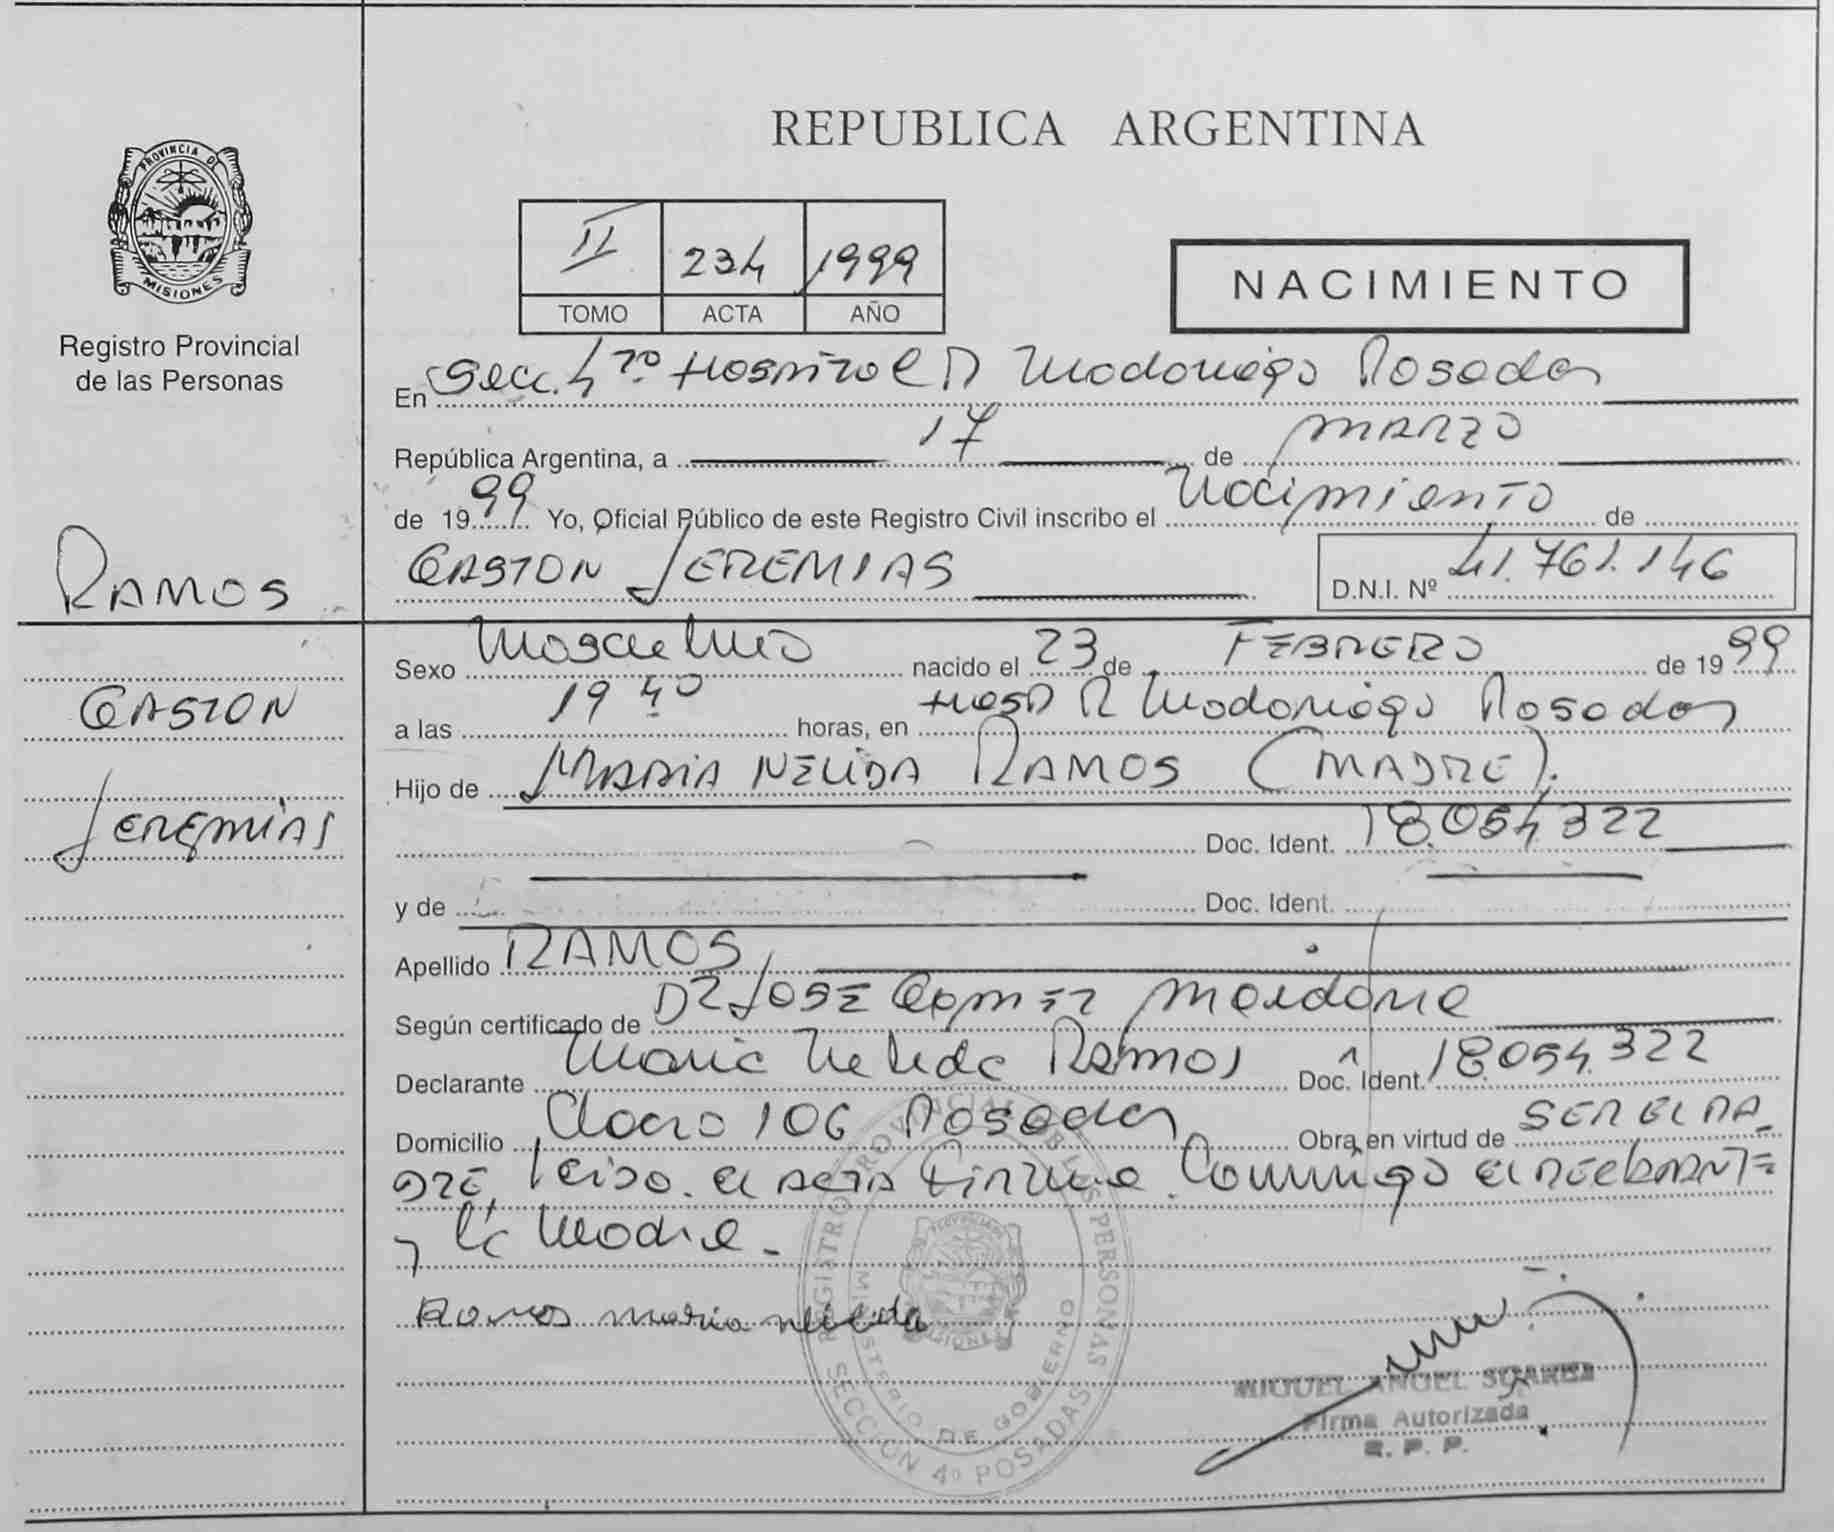 REPUBLICA ARGENTINA
PROVINCIA DE
MISIONES
Registro Provincial
de las Personas
II 234 1999
TOMO ACTA AÑO
NACIMIENTO
En Secc. 4 Hospital R Madariaga Posadas
República Argentina, a 17 de MARZO
de 1999 Yo, Oficial Público de este Registro Civil inscribo el Nacimiento de
RAMOS
GASTON JEREMIAS D.N.I. Nº 41.761.146
GASTON
JEREMIAS
Sexo Masculino nacido el 23 de FEBRERO de 1999
a las 19 40 horas, en Hosp R Madariaga Posadas
Hijo de MARIA NELIDA RAMOS (MADRE).
Doc. Ident. 18.054.322
y de Doc. Ident.
Apellido RAMOS
Según certificado de DR JOSE GOMEZ
Declarante Maria Nelida Ramos Doc. Ident. 18.054.322
Domicilio 106 Posadas Obra en virtud de SER EL PA
DRE, Leido el ACTA Firma Conmigo el DECLARANTE
y la Madre.-
Ramos maria nelida
REGISTRO PROVINCIAL DE LAS PERSONAS
MINISTERIO DE GOBIERNO
SECCION 4º POSADAS
MIGUEL ANGEL SUAREZ
Firma Autorizada
R. P. P.